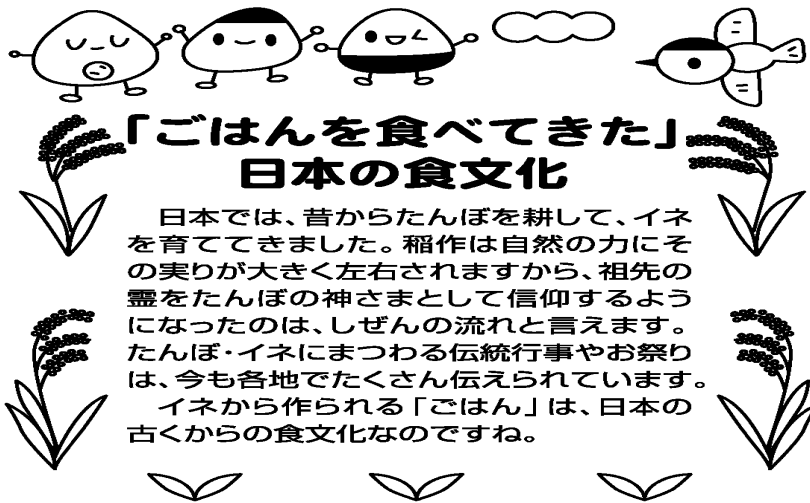 「ごはんを食べてきた」
日本の食文化
　日本では、昔からたんぼを耕して、イネ
を育ててきました。稲作は自然の力にそ
の実りが大きく左右されますから、祖先の
霊をたんぼの神さまとして信仰するよう
になったのは、しぜんの流れと言えます。
たんぼ・イネにまつわる伝統行事やお祭り
は、今も各地でたくさん伝えられています。
　イネから作られる「ごはん」は、日本の
古くからの食文化なのですね。